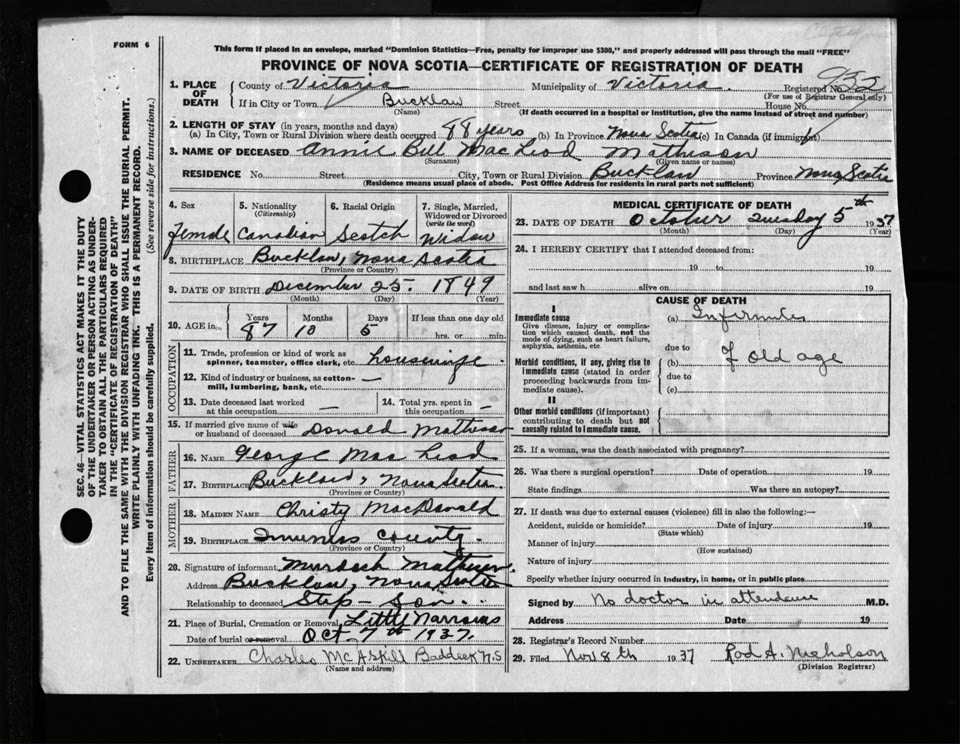 FORM 6
This form if placed in an envelope, marked "Dominion Statistics—Free, penalty for improper use $300," and properly addressed will pass through the mail "FREE"
PROVINCE OF NOVA SCOTIA—CERTIFICATE OF REGISTRATION OF DEATH
SEC. 46—VITAL STATISTICS ACT MAKES IT THE DUTY
OF THE UNDERTAKER OR PERSON ACTING AS UNDER-
TAKER TO OBTAIN ALL THE PARTICULARS REQUIRED
IN THE "CERTIFICATE OF REGISTRATION OF DEATH"
AND TO FILE THE SAME WITH THE DIVISION REGISTRAR WHO SHALL ISSUE THE BURIAL PERMIT.
WRITE PLAINLY WITH UNFADING INK. THIS IS A PERMANENT RECORD.
Every item of information should be carefully supplied. (See reverse side for instructions.)
1. PLACE OF DEATH County of Victoria Municipality of Victoria Registered No. 935
(For use of Registrar General only)
If in City or Town Bucklaw Street House No.
(Name) (If death occurred in a hospital or institution, give the name instead of street and number)
2. LENGTH OF STAY (in years, months and days)
(a) In City, Town or Rural Division where death occurred 88 years (b) In Province Nova Scotia (c) In Canada (if immigrant)
3. NAME OF DECEASED Annie Bell MacLeod Mathison
(Surname) (Given name or names)
RESIDENCE No. Street City, Town or Rural Division Bucklaw Province Nova Scotia
(Residence means usual place of abode. Post Office Address for residents in rural parts not sufficient)
4. Sex 5. Nationality (Citizenship) 6. Racial Origin 7. Single, Married, Widowed or Divorced (write the word)
Female Canadian Scotch Widow
8. BIRTHPLACE Bucklaw, Nova Scotia
(Province or Country)
9. DATE OF BIRTH December 25. 1849
(Month) (Day) (Year)
10. AGE in Years Months Days If less than one day
87 10 5 hrs. or min.
OCCUPATION
11. Trade, profession or kind of work as
spinner, teamster, office clerk, etc. housewife
12. Kind of industry or business, as cotton-
mill, lumbering, bank, etc. —
13. Date deceased last worked
at this occupation —
14. Total yrs. spent in
this occupation —
15. If married give name of wife
or husband of deceased Donald Mathison
FATHER
16. NAME George MacLeod
17. BIRTHPLACE Bucklaw, Nova Scotia
(Province or Country)
MOTHER
18. MAIDEN NAME Christy MacDonald
19. BIRTHPLACE Inverness County.
(Province or Country)
20. Signature of informant Murdoch Mathison
Address Bucklaw, Nova Scotia
Relationship to deceased Step-Son
21. Place of Burial, Cremation or Removal Little Narrows
Date of burial or removal Oct. 7th 1937.
22. UNDERTAKER Charles McAskill Baddeck N.S
(Name and address)
MEDICAL CERTIFICATE OF DEATH
23. DATE OF DEATH October Tuesday 5th 1937
(Month) (Day) (Year)
24. I HEREBY CERTIFY that I attended deceased from:
19 to 19
and last saw h alive on 19
CAUSE OF DEATH
I
Immediate cause
Give disease, injury or complica-
tion which caused death, not the
mode of dying, such as heart failure,
asphyxia, asthenia, etc.
(a) Infirmities
due to
Morbid conditions, if any, giving rise to
immediate cause (stated in order
proceeding backwards from im-
mediate cause).
(b) of old age
due to
(c)
II
Other morbid conditions (if important)
contributing to death but not
causally related to immediate cause.
25. If a woman, was the death associated with pregnancy?
26. Was there a surgical operation? Date of operation 19
State findings Was there an autopsy?
27. If death was due to external causes (violence) fill in also the following:—
Accident, suicide or homicide? Date of injury 19
(State which)
Manner of injury
(How sustained)
Nature of injury
Specify whether injury occurred in industry, in home, or in public place
Signed by No doctor in attendance M.D.
Address Date 19
28. Registrar's Record Number
29. Filed Nov 8th 1937 Rod A. Nicholson
(Division Registrar)